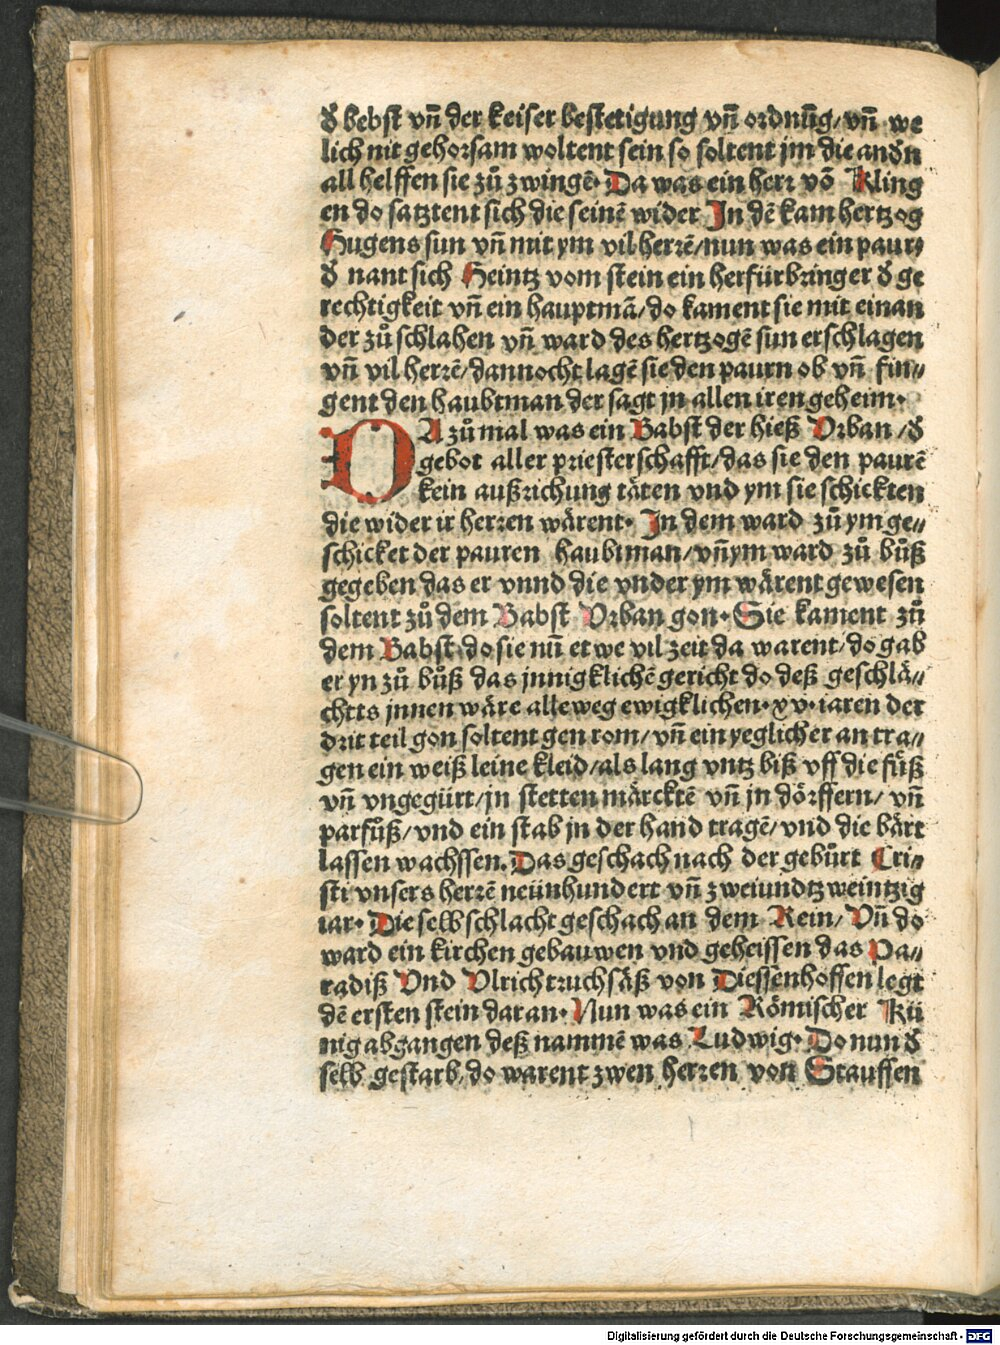 d̕ bebst vn̄ der keiser bestetigung vn̄ ordnūg/vn̄ we
lich nit gehorsam woltent sein so soltent jm die andn̄
all helffen sie zů zwingē. Da was ein herr vō Kling
en do satztent sich die seinē wider In dē kam hertzog
Hugens sun vn̄ mit ym vil herrē/nun was ein paur/
d̕ nant sich Heintz vom stein ein herfürbringer d̕ ge
rechtigkeit vn̄ ein hauptmā/do kament sie mit einan
der zů schlahen vn̄ ward des hertzogē sun erschlagen
vn̄ vil herrē/dannocht lagē sie den paurn ob vn̄ fin//
gent den haubtman der sagt jn allen iren geheim.
DA zů mal was ein Babst der hieß Vrban/d̕
gebot aller priesterschafft/das sie den paurē
kein außrichung täten vnd ym sie schickten
die wider ir herren wärent. In dem ward zů ym ge//
schicket der pauren haubtman/vn̄ ym ward zů bůß
gegeben das er vnnd die vnder ym wärent gewesen
soltent zů dem Babst Vrban gon. Sie kament zů
dem Babst do sie nū etwe vil zeit da warent/do gab
er yn zů bůß das jnnigklichē gericht do deß geschlä//
chtts jnnen wäre alleweg ewigklichen. xv. iaren der
drit teil gon soltent gen rom/vn̄ ein yeglicher an tra//
gen ein weiß leine kleid/als lang vntz biß vff die füß
vn̄ vngegürt/jn stetten märcktē vn̄ jn dörffern/vn̄
parfůß/vnd ein stab jn der hand tragē/vnd die bärt
lassen wachssen. Das geschach nach der gebůrt Cri//
sti vnsers herrē neünhundert vn̄ zweiundtzweintzig
iar. Die selb schlacht geschach an dem Rein/Vn̄ do
ward ein kirchen gebauwen vnd geheissen das Pa//
radiß Vnd Vlrich truchsäß von Diessenhoffen legt
dē ersten stein daran. Nun was ein Römischer Kü
nig abgangen deß nammē was Ludwig. Do nun d̕
selb gestarb/do warent zwen herren von Stauffen
Digitalisierung gefördert durch die Deutsche Forschungsgemeinschaft - DFG